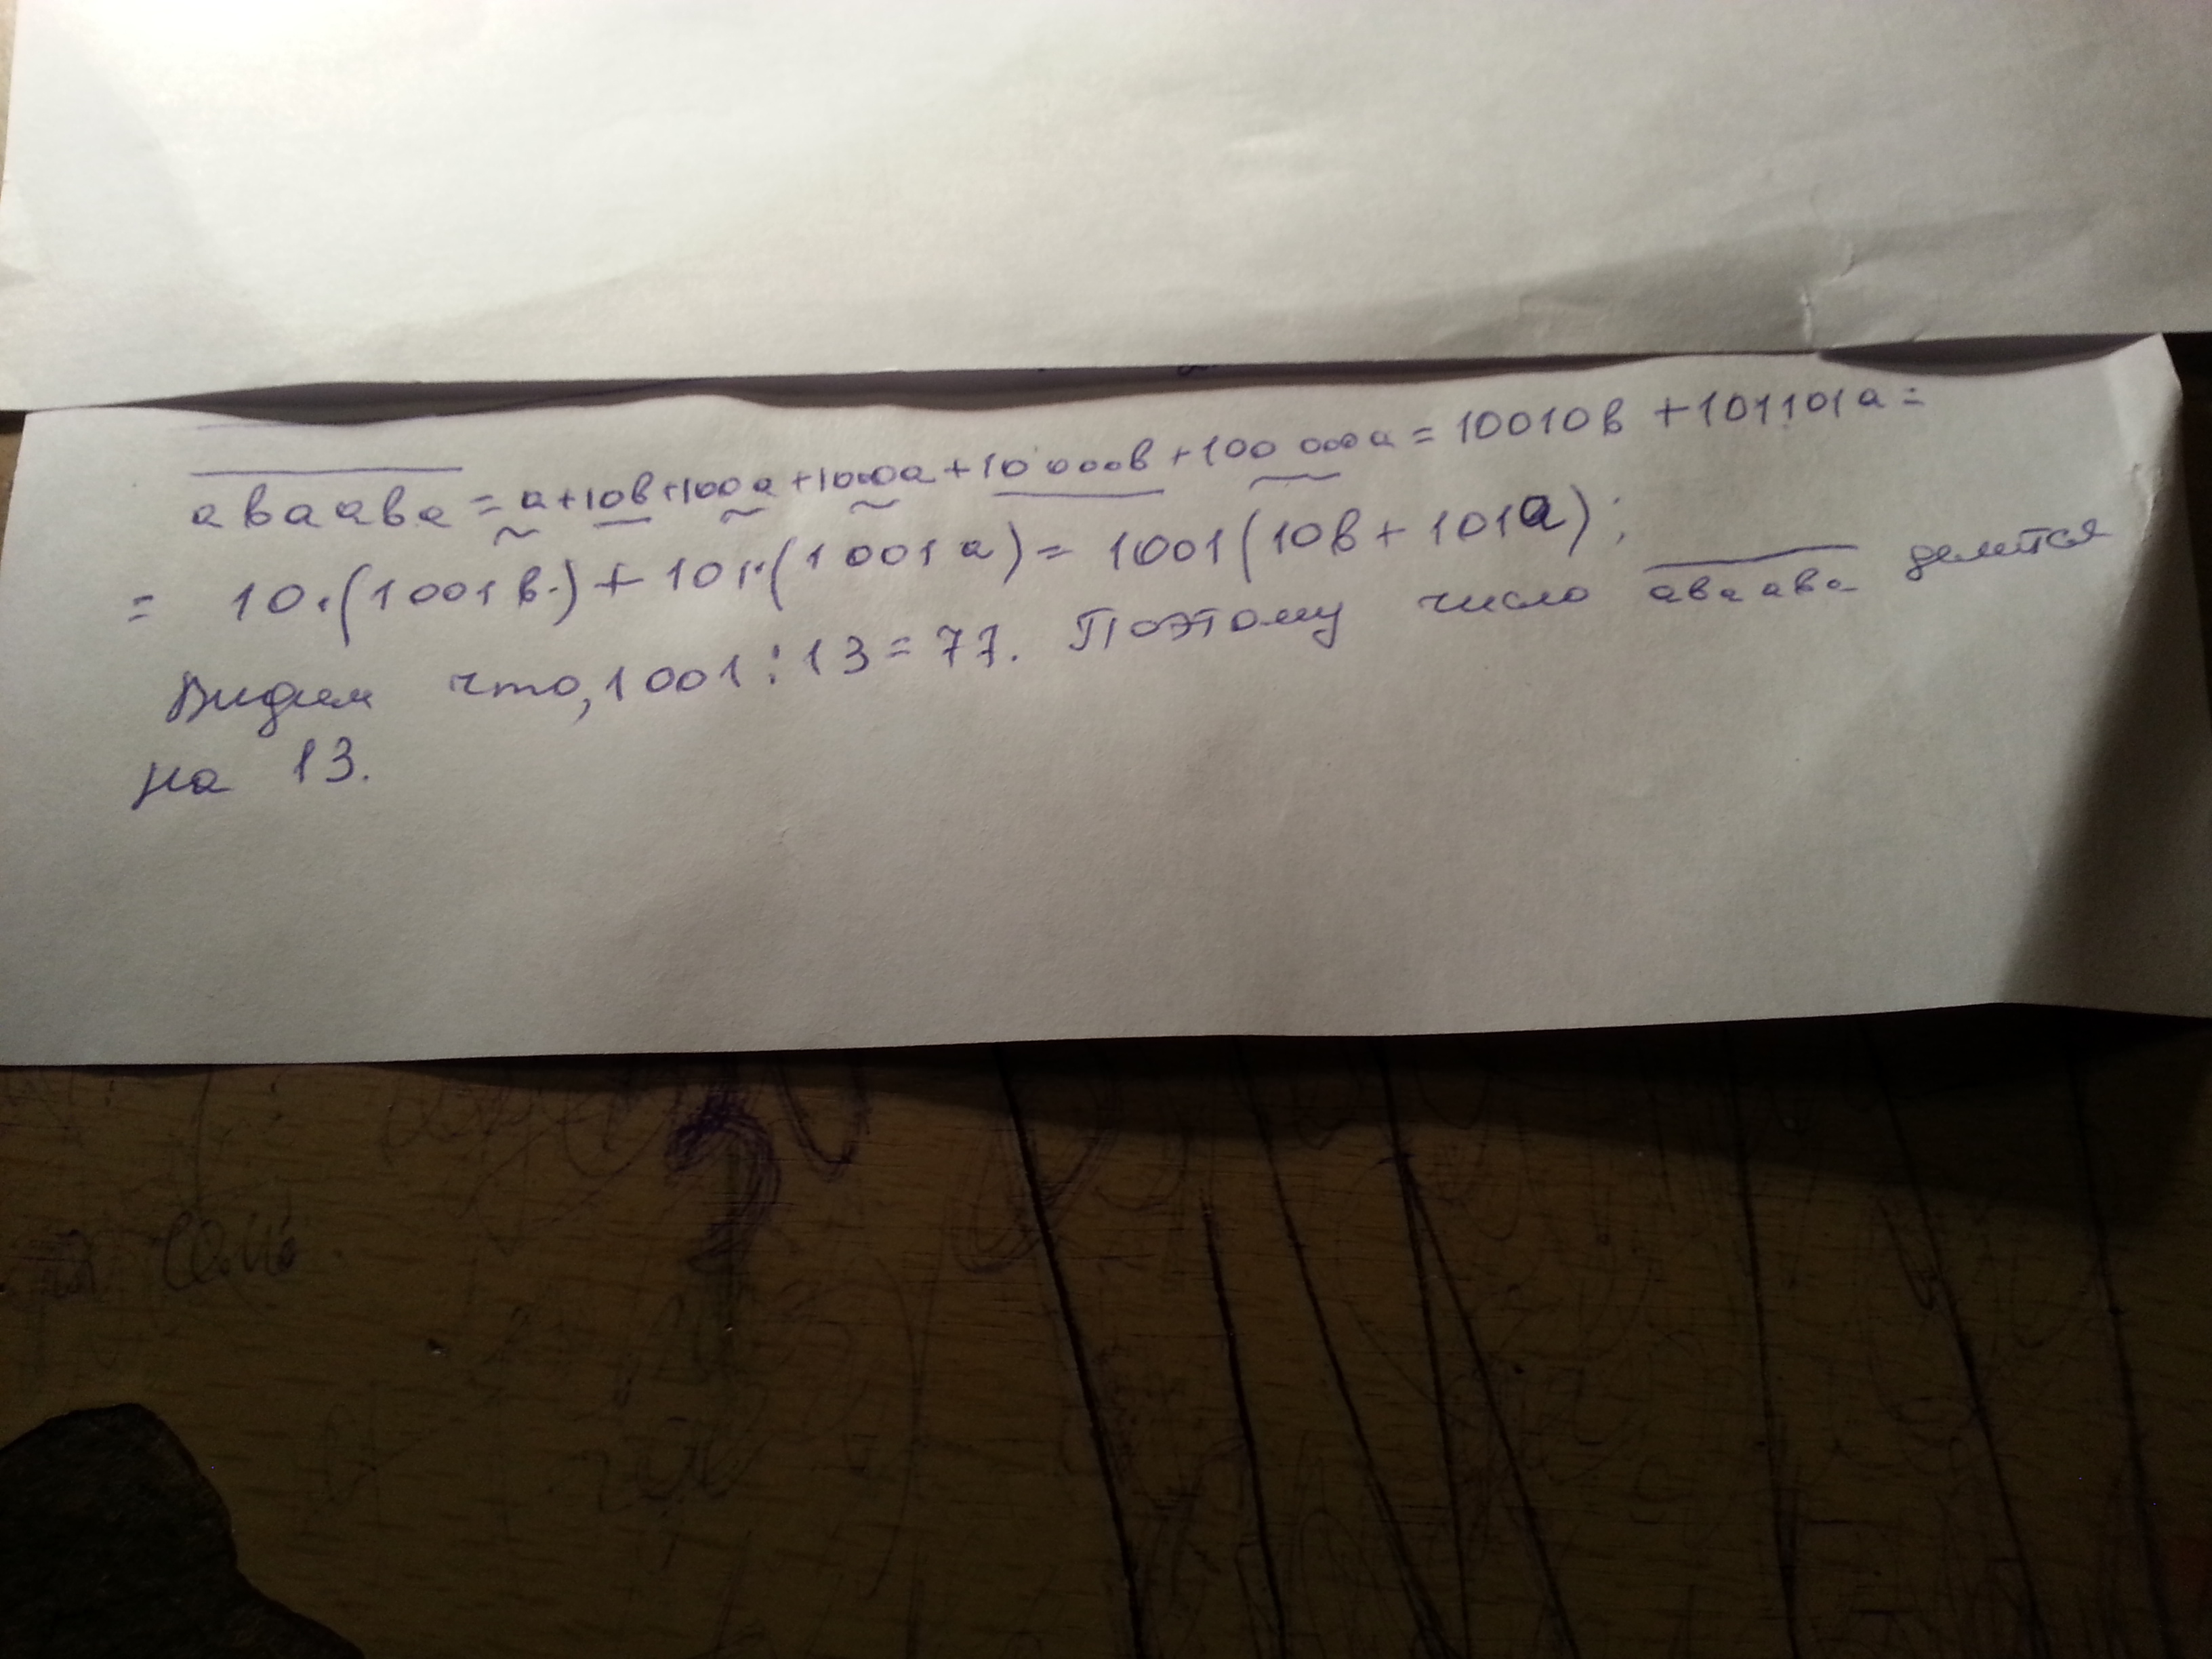 аваава = а+10в+100а+1000а+10 000в+100 000а = 10010в +101101а =
= 10·(1001в·)+101·(1001а)= 1001(10в+101а);
Видим что,1001:13=77. Поэтому число аваава делится
на 13.